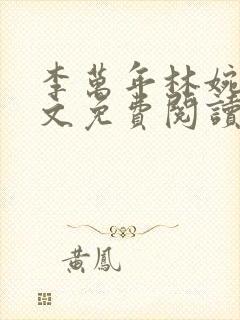 李萬年林婉
文免費閱讀
黃鳳